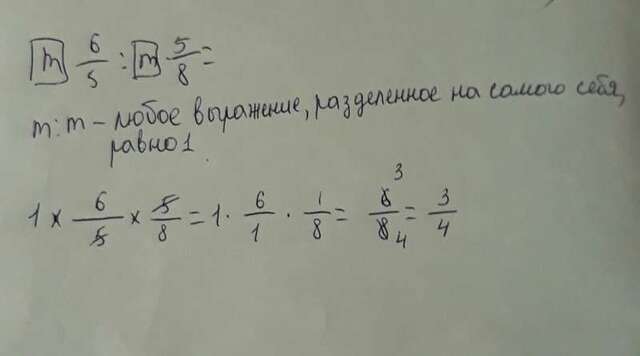 m 6/5 : m 5/8 =
m : m – любое выражение, разделенное на самого себя,
равно 1.
1 × 6/5 × 5/8 = 1 · 6/1 · 1/8 = 6/8 3 4 = 3/4